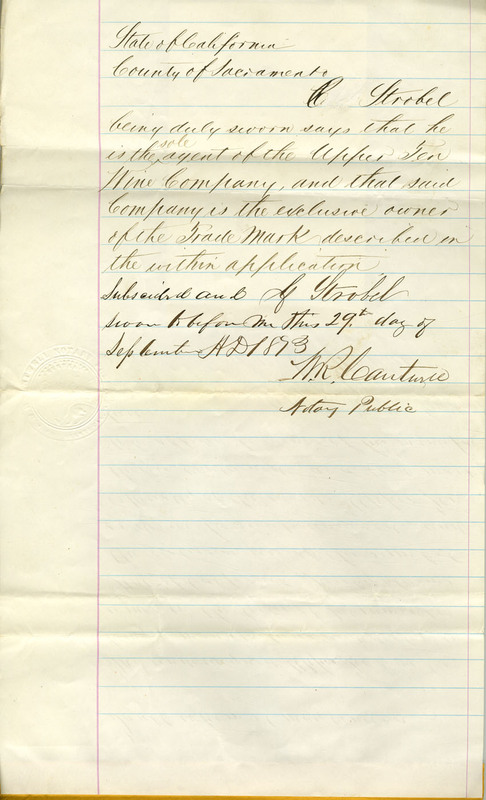 State of California
County of Sacramento
Strobel
being duly sworn says that he
sole
is the agent of the Upper Ten
Wine Company, and that said
Company is the exclusive owner
of the Trade Mark described in
the within application
Subscribed and Strobel
sworn to before me this 29th day of
September AD 1873
W.R. Cantwell
Notary Public